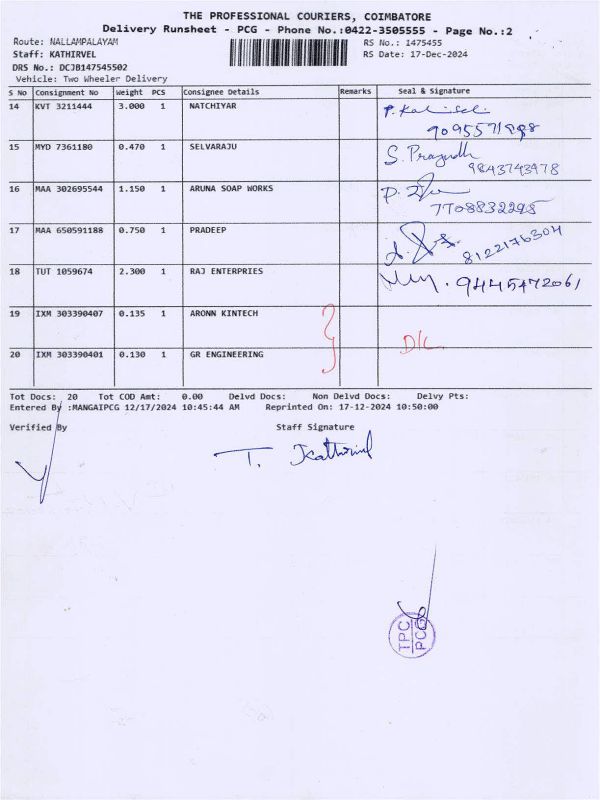 THE PROFESSIONAL COURIERS, COIMBATORE
Delivery Runsheet - PCG - Phone No.:0422-3505555 - Page No.:2
Route: NALLAMPALAYAM RS No.: 1475455
Staff: KATHIRVEL RS Date: 17-Dec-2024
DRS No.: DCJB147545502
Vehicle: Two Wheeler Delivery
S No Consignment No Weight PCS Consignee Details Remarks Seal & Signature
14 KVT 3211444 3.000 1 NATCHIYAR
15 MYD 7361180 0.470 1 SELVARAJU S. Pragudh
9843743978
16 MAA 302695544 1.150 1 ARUNA SOAP WORKS
7708832295
17 MAA 650591188 0.750 1 PRADEEP
8122176304
18 TUT 1059674 2.300 1 RAJ ENTERPRIES 9445472061
19 IXM 303390407 0.135 1 ARONN KINTECH
D/L
20 IXM 303390401 0.130 1 GR ENGINEERING
Tot Docs: 20 Tot COD Amt: 0.00 Delvd Docs: Non Delvd Docs: Delvy Pts:
Entered By :MANGAIPCG 12/17/2024 10:45:44 AM Reprinted On: 17-12-2024 10:50:00
Verified By Staff Signature
T. Kathirvel
TPC
PCG